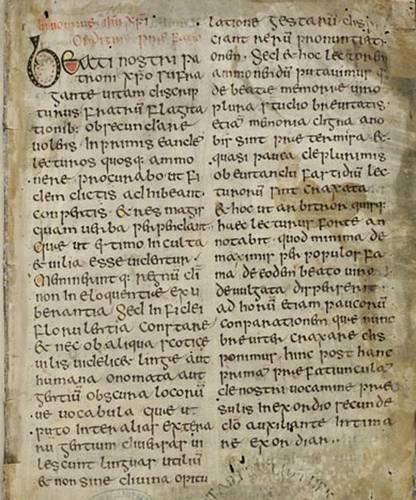 In nomine ihu xpi
Orditur prae fatio
Beati nostri pa
troni xpo suffra
gante uitam discrip
turus fratrum flagita
tionib; obsecundare
uolens. Inprimis eande
lecturos quosq; ammo
nere procurabo ut fi
dem dictis adhibeant
conpertis. & res magis
quam uerba perpendant.
Quae ut estimo inculta
& uilia esse uidentur.
Meminerint q; regnū di
non in eloquentiae exu
berantia sed in fidei
florulentia constare
& nec ob aliqua scoticae
uilis uidelic& lingae aut
humana onomata aut
gentiū obscura locorū
ue uocabula quae ut
puto inter alias extera
rū gentium diuersas ui
lescunt linguas utiliū
& non sine diuina opitu
latione gestarū dispi
ciant rerū pronuntiati
onem. Sed & hoc lectorem
ammonendū putauimus q
de beatae memoriae uiro
plura studio breuitatis
etiā memoria digna a no
bis sint praetermisa. &
quasi pauca de plurimis
ob euitandū fastidiū lec
turorū sint craxata
& hoc ut arbitror quisq;
haec lecturus forte an
notabit. quod minima de
maximis per populos fa
ma de eodem beato uiro
deuulgata disperserit.
ad horū etiam paucorū
conparationem quae nunc
breuiter craxare dis
ponimus. hinc post hanc
primā praefatiunculā
de nostri uocamine prae
sulis in exordio secundo
dō auxiliante intima
re exordiar..